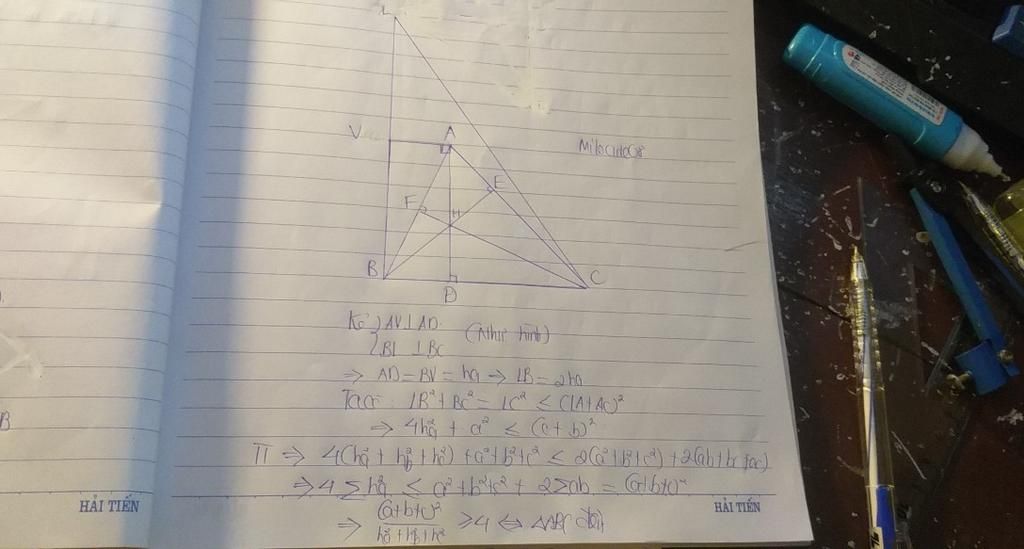 L
V
A
E
F
H
B
D
C
Kẻ { AV ⊥ AD
BL ⊥ BC
(Như hình)
⇒ AD = BV = ha → LB = 2ha
Ta có: LB² + BC² = LC² ≤ (LA + AC)²
⇒ 4ha² + a² ≤ (c + b)²
TT ⇒ 4(ha² + hb² + hc²) + a² + b² + c² ≤ 2(a² + b² + c²) + 2(ab + bc + ac)
⇒ 4 ∑ha² ≤ a² + b² + c² + 2∑ab = (a+b+c)²
⇒ (a+b+c)² / (ha² + hb² + hc²) ≥ 4 ⇔ ΔABC đều
HẢI TIẾN
HẢI TIẾN
B